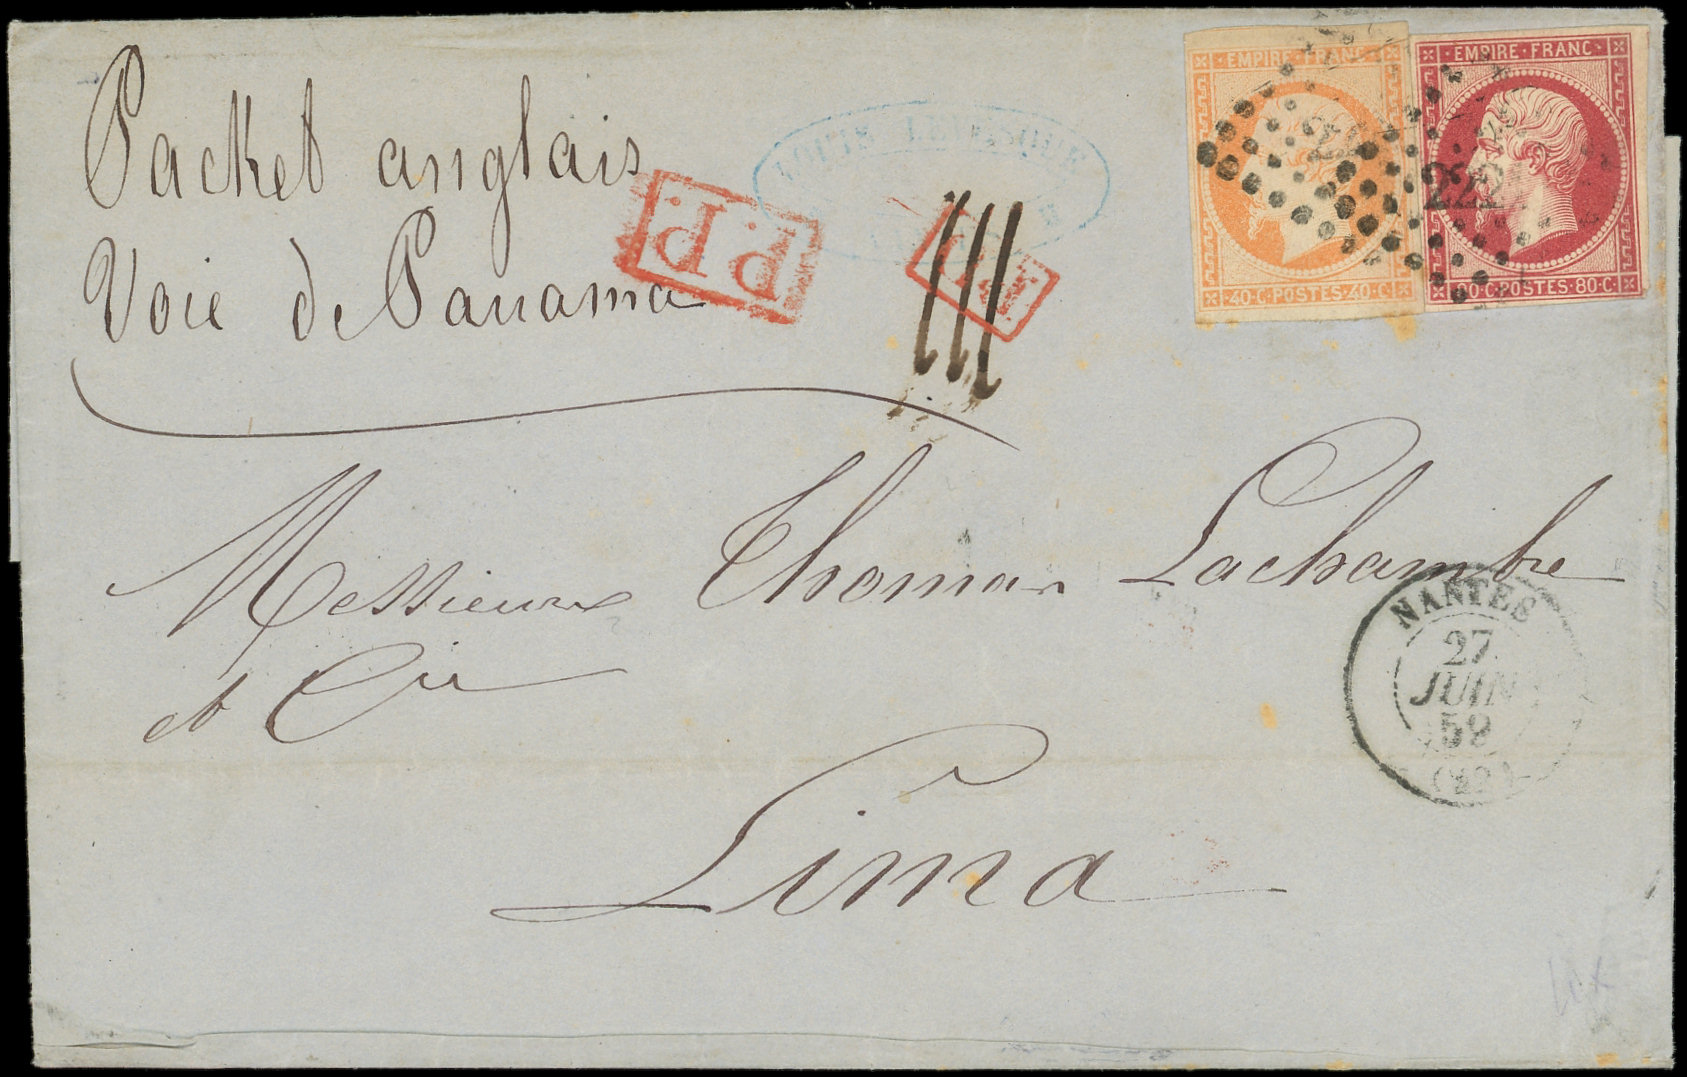 Packet anglais
Voie de Panama
P.P.
LOUIS LEVESQUE
PD
EMPIRE·FRANC·
40·C·POSTES·40·C·
EMPIRE·FRANC·
80·C·POSTES·80·C·
2221
Messieurs Thomas Lachambre
et Cie
Lima
NANTES
27
JUIN
59